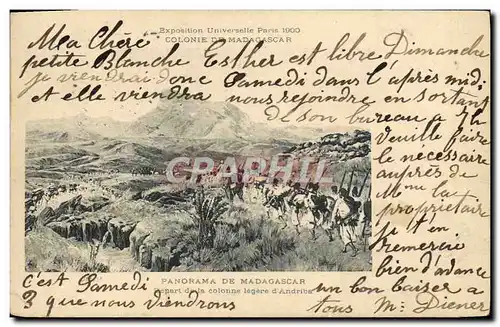 Exposition Universelle Paris 1900
COLONIE DE MADAGASCAR
Ma Chère
petite Blanche Esther est libre Dimanche
je viendrai donc Samedi dans l'après midi
et elle viendra nous rejoindre en sortant
de son bureau à 7h
Veuille faire
le nécessaire
auprès de
Mme la
propriétaire
je t'en
remercie
bien d'avance
un bon baiser à
tous M. Diener
CPARAMA
PANORAMA DE MADAGASCAR
Départ de la colonne légère d'Andriba
C'est Samedi
3 que nous viendrons